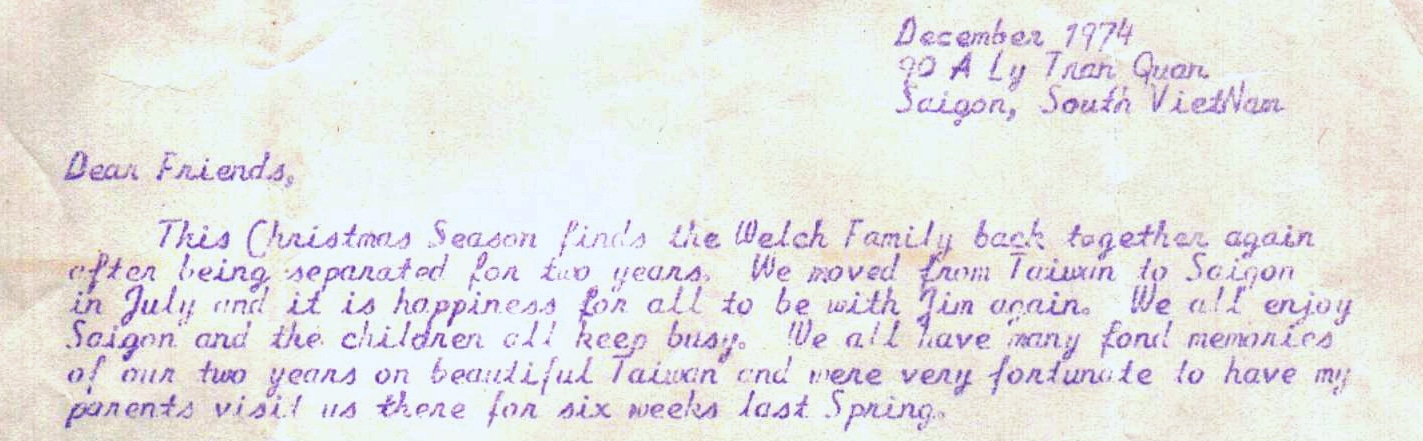 December 1974
90 A Ly Tran Quan
Saigon, South VietNam
Dear Friends,
This Christmas Season finds the Welch Family back together again
after being separated for two years. We moved from Taiwan to Saigon
in July and it is happiness for all to be with Jim again. We all enjoy
Saigon and the children all keep busy. We all have many fond memories
of our two years on beautiful Taiwan and were very fortunate to have my
parents visit us there for six weeks last Spring.